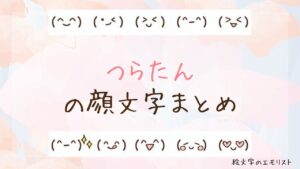 (^‿^) (•ᴗ<) (>ᴗ<) (^–^) (>ᴗ<)
つらたん
の顔文字まとめ
(^–^)✨ (^ᴗ^) (^o^) (◡‿◡) (♡‿♡)
絵文字のエモリスト